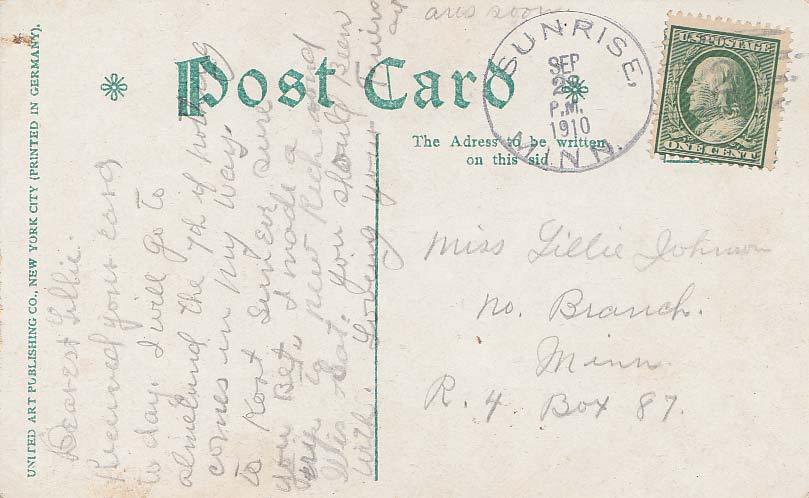 UNITED ART PUBLISHING CO., NEW YORK CITY (PRINTED IN GERMANY).
Post Card
The Adress to be written
on this sid
SUNRISE,
SEP
P.M.
1910
MINN.
U.S. POSTAGE
ONE CENT
Miss Lillie Johnson
No. Branch.
Minn
R. 4 Box 87.
Dearest Lillie.
Received your card
to day. I will go to
almelund the 7th if nothing
comes in my way.
to
you Bet. I made a
to New Richmond
Wis Sat. you should been
with. Loving your
ans soon.